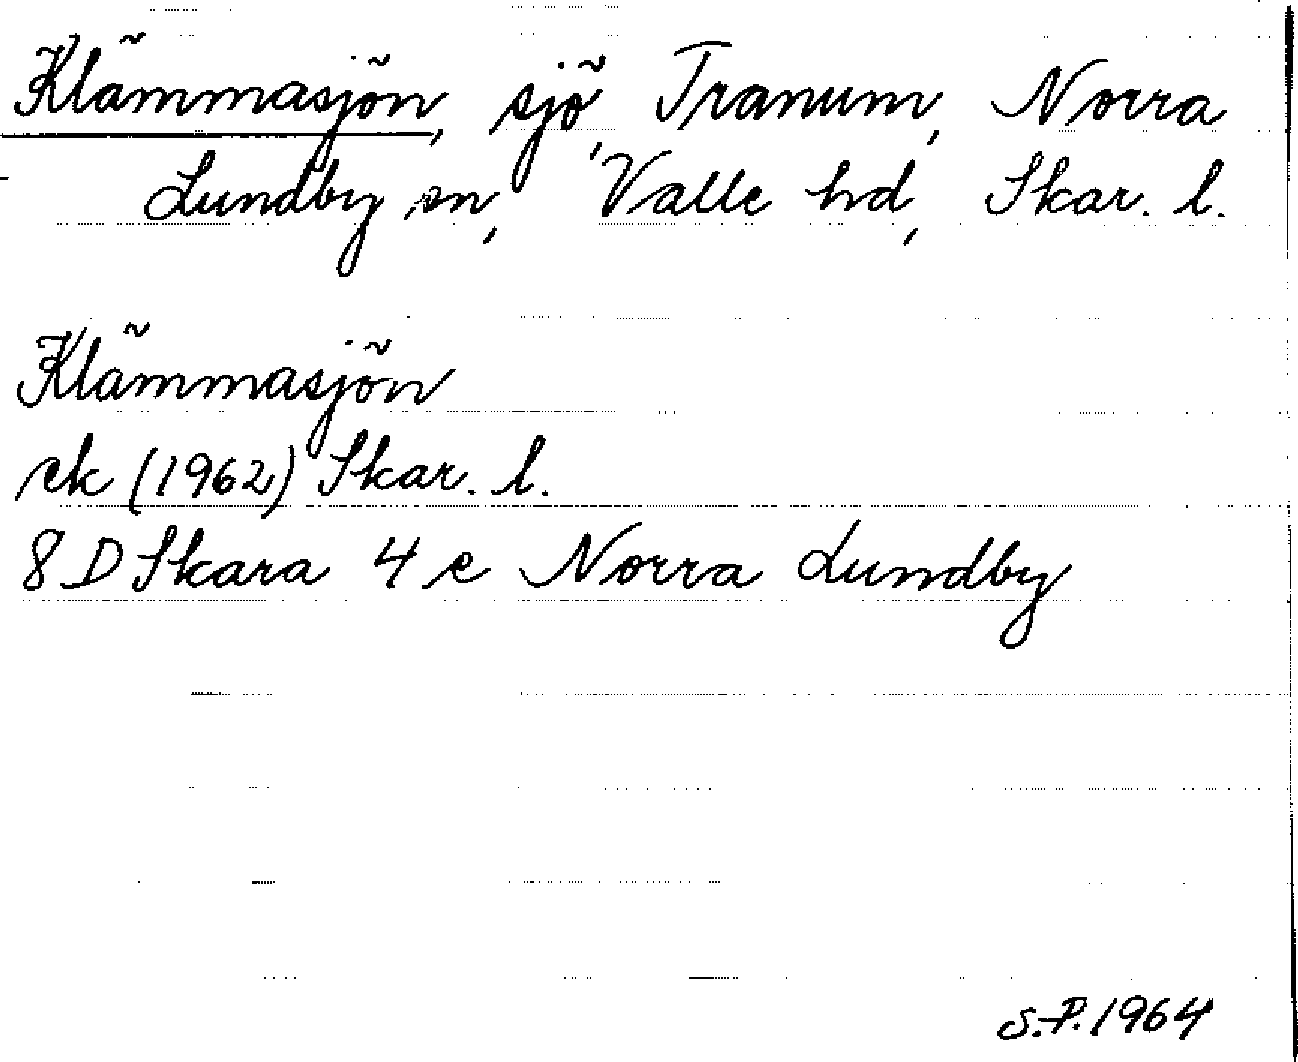 Klämmasjön, sjö, Tranum, Norra
Lundby sn, Valle hd, Skar. l.
Klämmasjön
ek (1962) Skar. l.
8 D Skara 4 e Norra Lundby
S.P. 1964